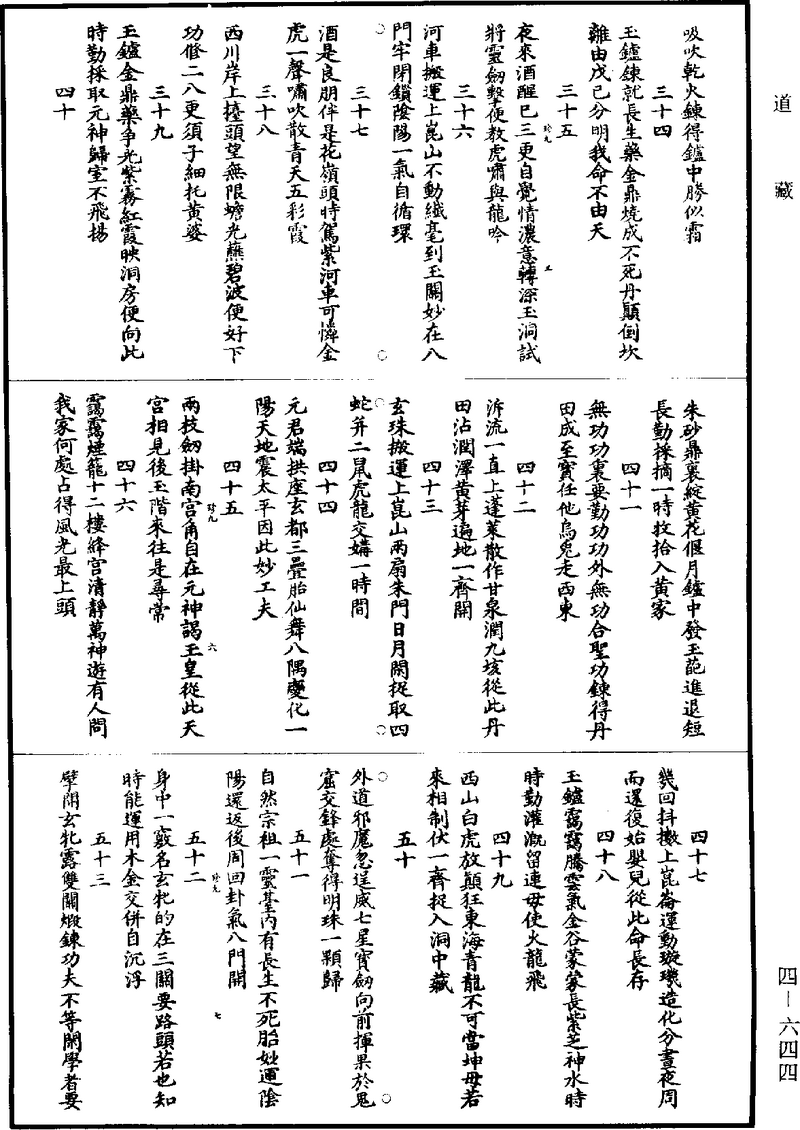 道藏
吸吹乾火鍊得鑪中勝似霜
三十四
玉鑪鍊就長生藥金鼎燒成不死丹顛倒坎
離由戊巳分明我命不由天
三十五
夜來酒醒巳三更自覺情濃意轉深玉洞試
將靈劒擊便教虎嘯與龍吟
三十六
河車搬運上崑山不動纖毫到玉關妙在八
門牢閉鎖陰陽一氣自循環
三十七
酒是良朋伴是花嶺頭時駕紫河車可憐金
虎一聲嘯吹散青天五彩霞
三十八
西川岸上擡頭望無限蟾光蘸碧波便好下
功修二八更須子細托黃婆
三十九
玉鑪金鼎藥爭光紫霧紅霞映洞房便向此
時勤採取元神歸室不飛揚
四十
朱砂鼎裏綻黃花偃月鑪中發玉葩進退短
長勤採摘一時收拾入黃家
四十一
無功功裏要勤功功外無功合聖功鍊得丹
田成至寶任他烏兎走西東
四十二
泝流一直上蓬萊散作甘泉潤九垓從此丹
田沾潤澤黃芽遍地一齊開
四十三
玄珠搬運上崑山兩扇朱門日月關捉取四
蛇并二鼠虎龍交媾一時間
四十四
元君端拱座玄都三疊胎仙舞八隅變化一
陽天地震太平因此妙工夫
四十五
兩枝劒掛南宮角自在元神謁玉皇從此天
宮相見後玉階來往是尋常
四十六
靄靄煙籠十二樓絳宮清靜萬神遊有人問
我家何處占得風光最上頭
四十七
幾回抖擻上崑崙運動璇璣造化分晝夜周
而還復始嬰兒從此命長存
四十八
玉鑪靄靄騰雲氣金谷蒙蒙長紫芝神水時
時勤灌溉留連毋使火龍飛
四十九
西山白虎放顛狂東海青龍不可當坤母若
來相制伏一齊捉入洞中藏
五十
外道邪魔忽逞威七星寶劒向前揮果於鬼
窟交鋒處奪得明珠一顆歸
五十一
自然宗祖一靈基內有長生不死胎妙運陰
陽還返後周回卦氣八門開
五十二
身中一竅名玄牝的在三關要路頭若也知
時能運用木金交併自沉浮
五十三
擘開玄牝露雙關煅鍊功夫不等閑學者要
四—六四四